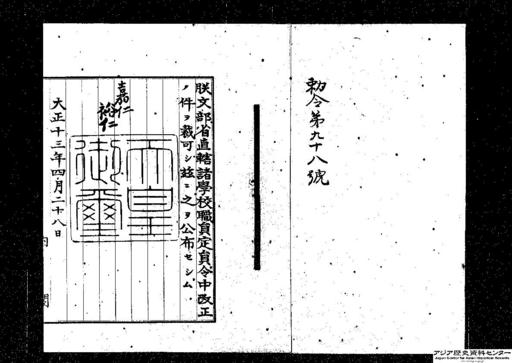 勅令第九十八號
朕文部省直轄諸學校職員定員令中改正
ノ件ヲ裁可シ茲ニ之ヲ公布セシム
嘉仁
裕仁
天皇
御璽
大正十三年四月二十八日
アジア歴史資料センター
Japan Center for Asian Historical Records